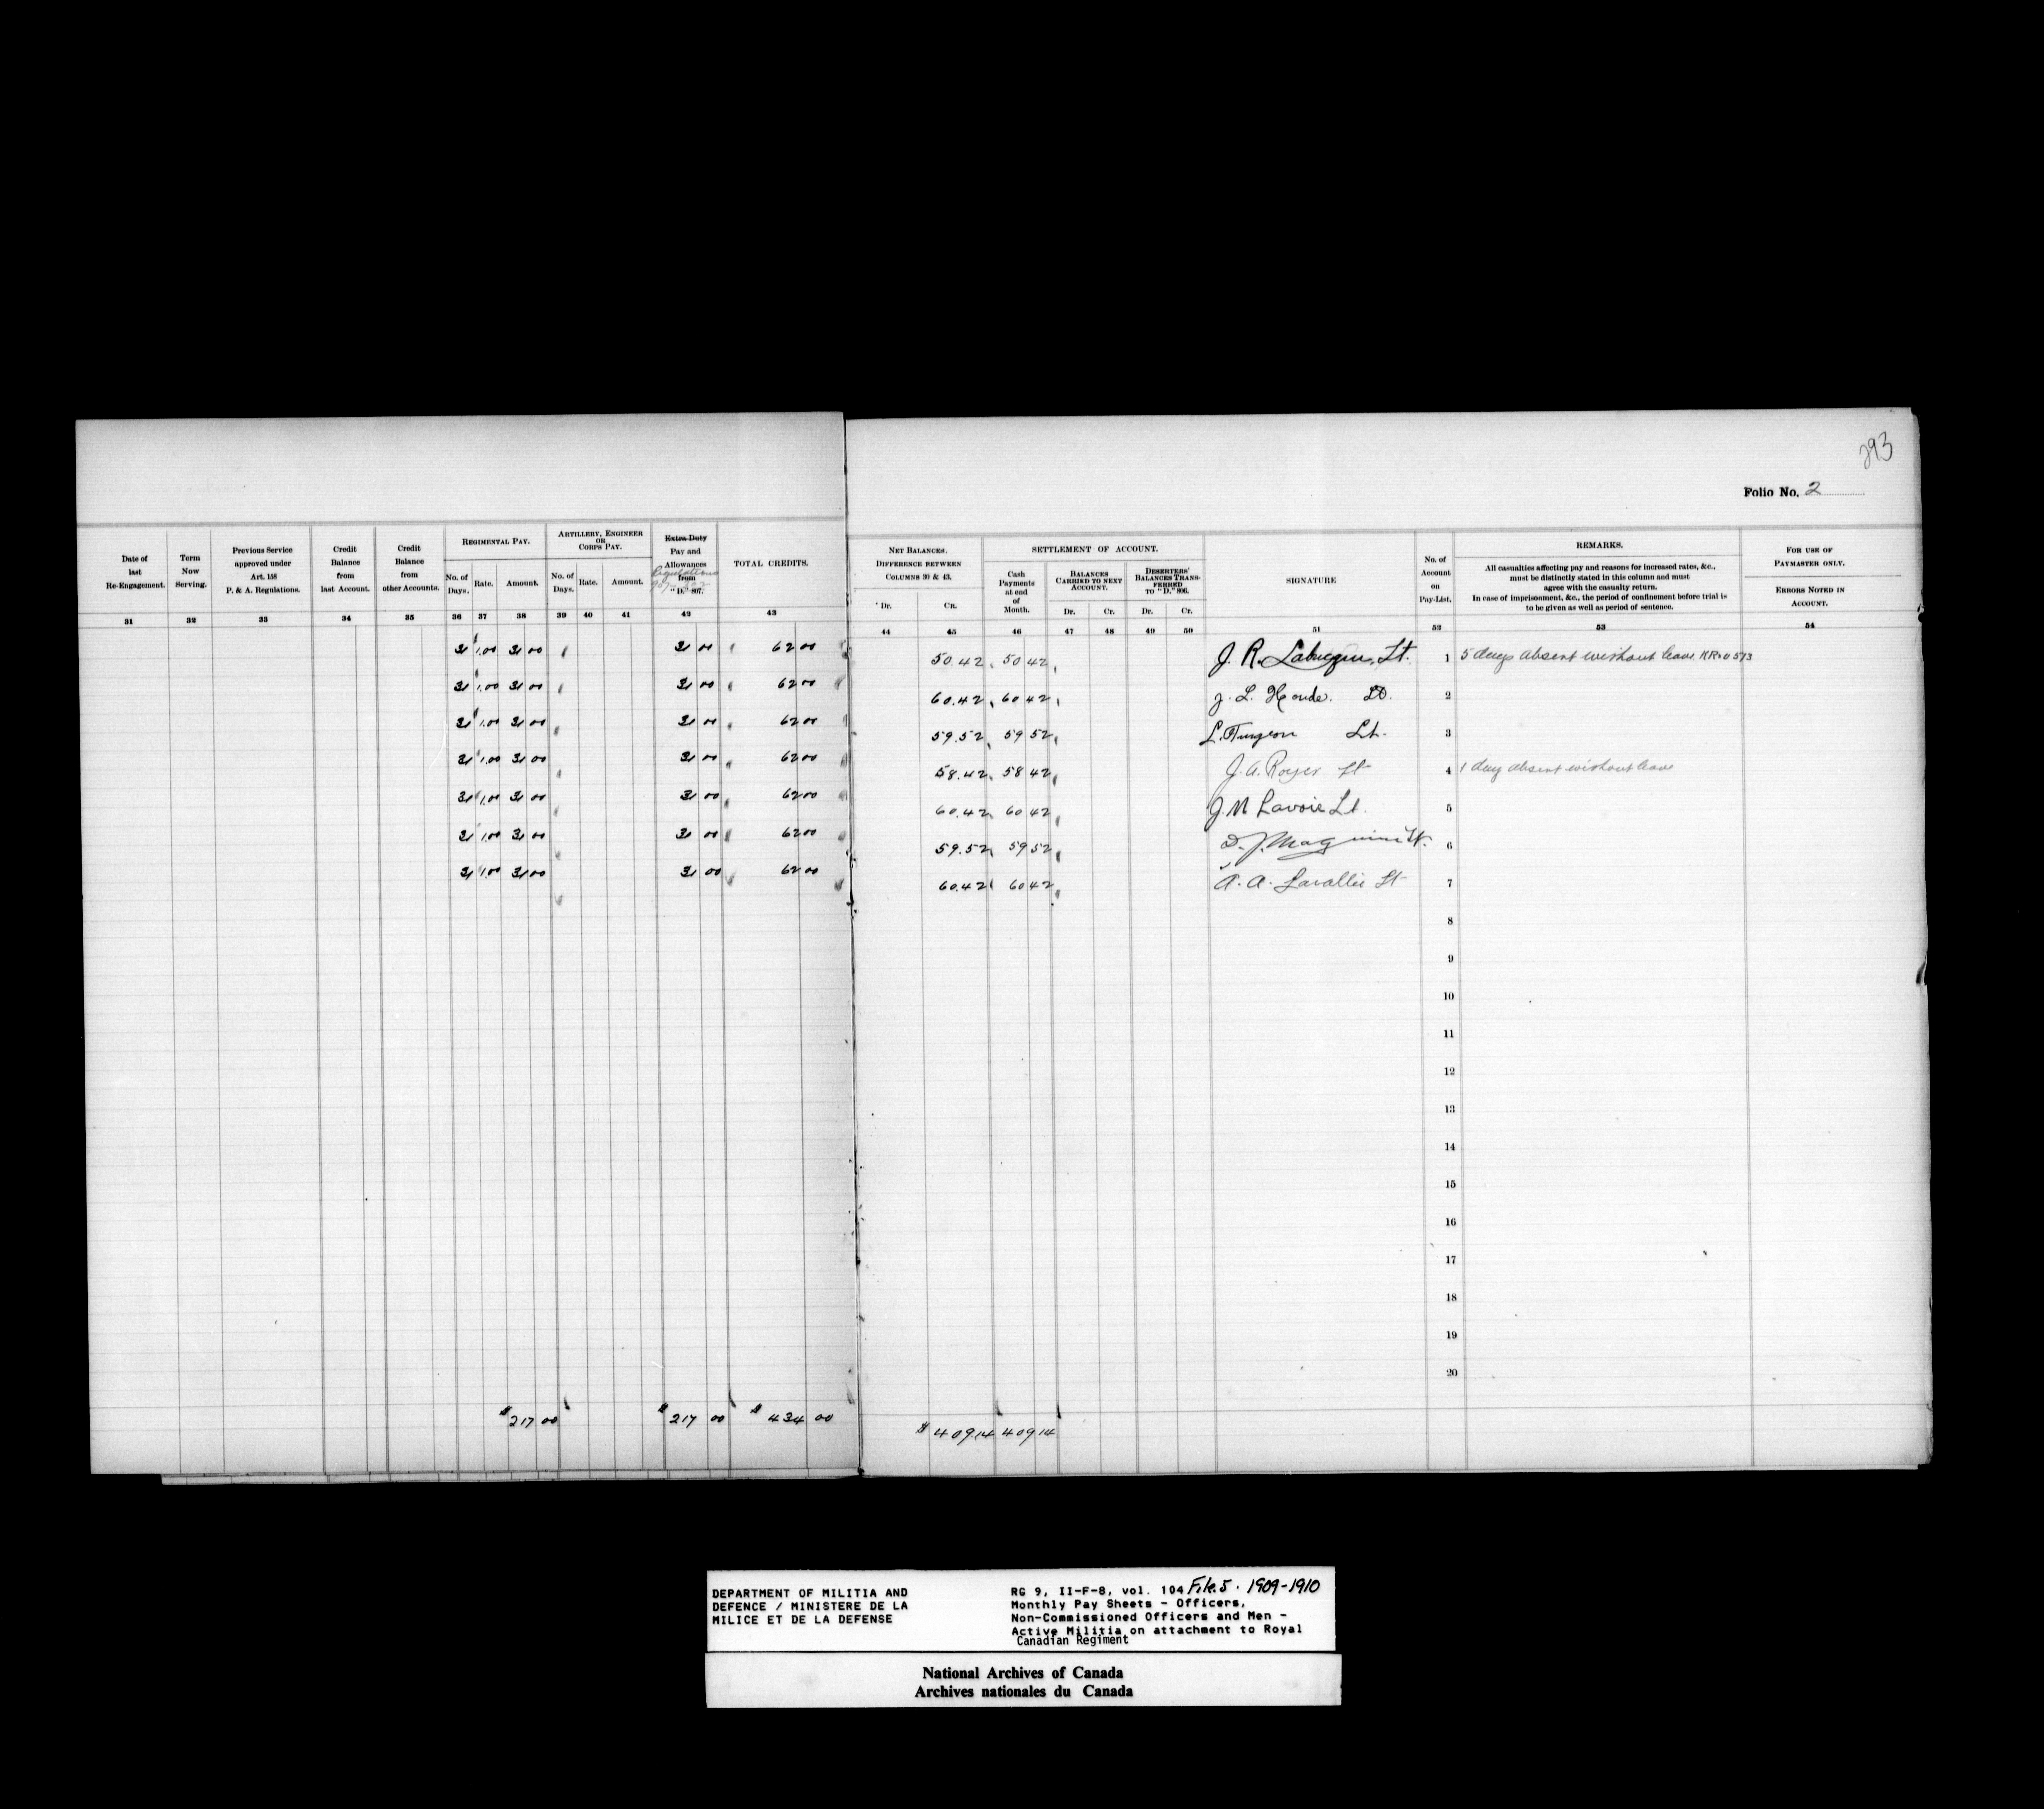 293
Folio No. 2
Date of last Re-Engagement.
Term Now Serving.
Previous Service approved under Art. 158 P. & A. Regulations.
Credit Balance from last Account.
Credit Balance from other Accounts.
REGIMENTAL PAY.
No. of Days.
Rate.
Amount.
ARTILLERY, ENGINEER OR CORPS PAY.
No. of Days.
Rate.
Amount.
Extra Duty Pay and Allowances from "D." 807.
TOTAL CREDITS.
NET BALANCES. DIFFERENCE BETWEEN COLUMNS 30 & 43.
Dr.
Cr.
SETTLEMENT OF ACCOUNT.
Cash Payments at end of Month.
BALANCES CARRIED TO NEXT ACCOUNT.
Dr.
Cr.
DESERTERS' BALANCES TRANSFERRED TO "D." 806.
Dr.
Cr.
SIGNATURE
No. of Account on Pay-List.
REMARKS.
All casualties affecting pay and reasons for increased rates, &c.,
must be distinctly stated in this column and must
agree with the casualty return.
In case of imprisonment, &c., the period of confinement before trial is
to be given as well as period of sentence.
FOR USE OF PAYMASTER ONLY.
ERRORS NOTED IN ACCOUNT.
31 32 33 34 35 36 37 38 39 40 41 42 43 44 45 46 47 48 49 50 51 52 53 54
31 1.00 31 00 31 00 62 00 50.42 50 42 J. R. Lt. 1 5 days absent without leave
31 1.00 31 00 31 00 62 00 60.42 60 42 J. L. Houde. Lt. 2
31 1.00 31 00 31 00 62 00 59.52 59 52 L. Turgeon Lt. 3
31 1.00 31 00 31 00 62 00 58.42 58 42 J. A. Royer Lt 4 1 day absent without leave
31 1.00 31 00 31 00 62 00 60.42 60 42 J. M Lavoie Lt. 5
31 1.00 31 00 31 00 62 00 59.52 59 52 6
31 1.00 31 00 31 00 62 00 60.42 60 42 A. Lavallée Lt 7
8
9
10
11
12
13
14
15
16
17
18
19
20
$217 00 $217 00 $434 00 $409.14 409 14
DEPARTMENT OF MILITIA AND
DEFENCE / MINISTERE DE LA
MILICE ET DE LA DEFENSE
RG 9, II-F-8, vol. 104 File.5. 1909-1910
Monthly Pay Sheets - Officers,
Non-Commissioned Officers and Men -
Active Militia on attachment to Royal
Canadian Regiment
National Archives of Canada
Archives nationales du Canada